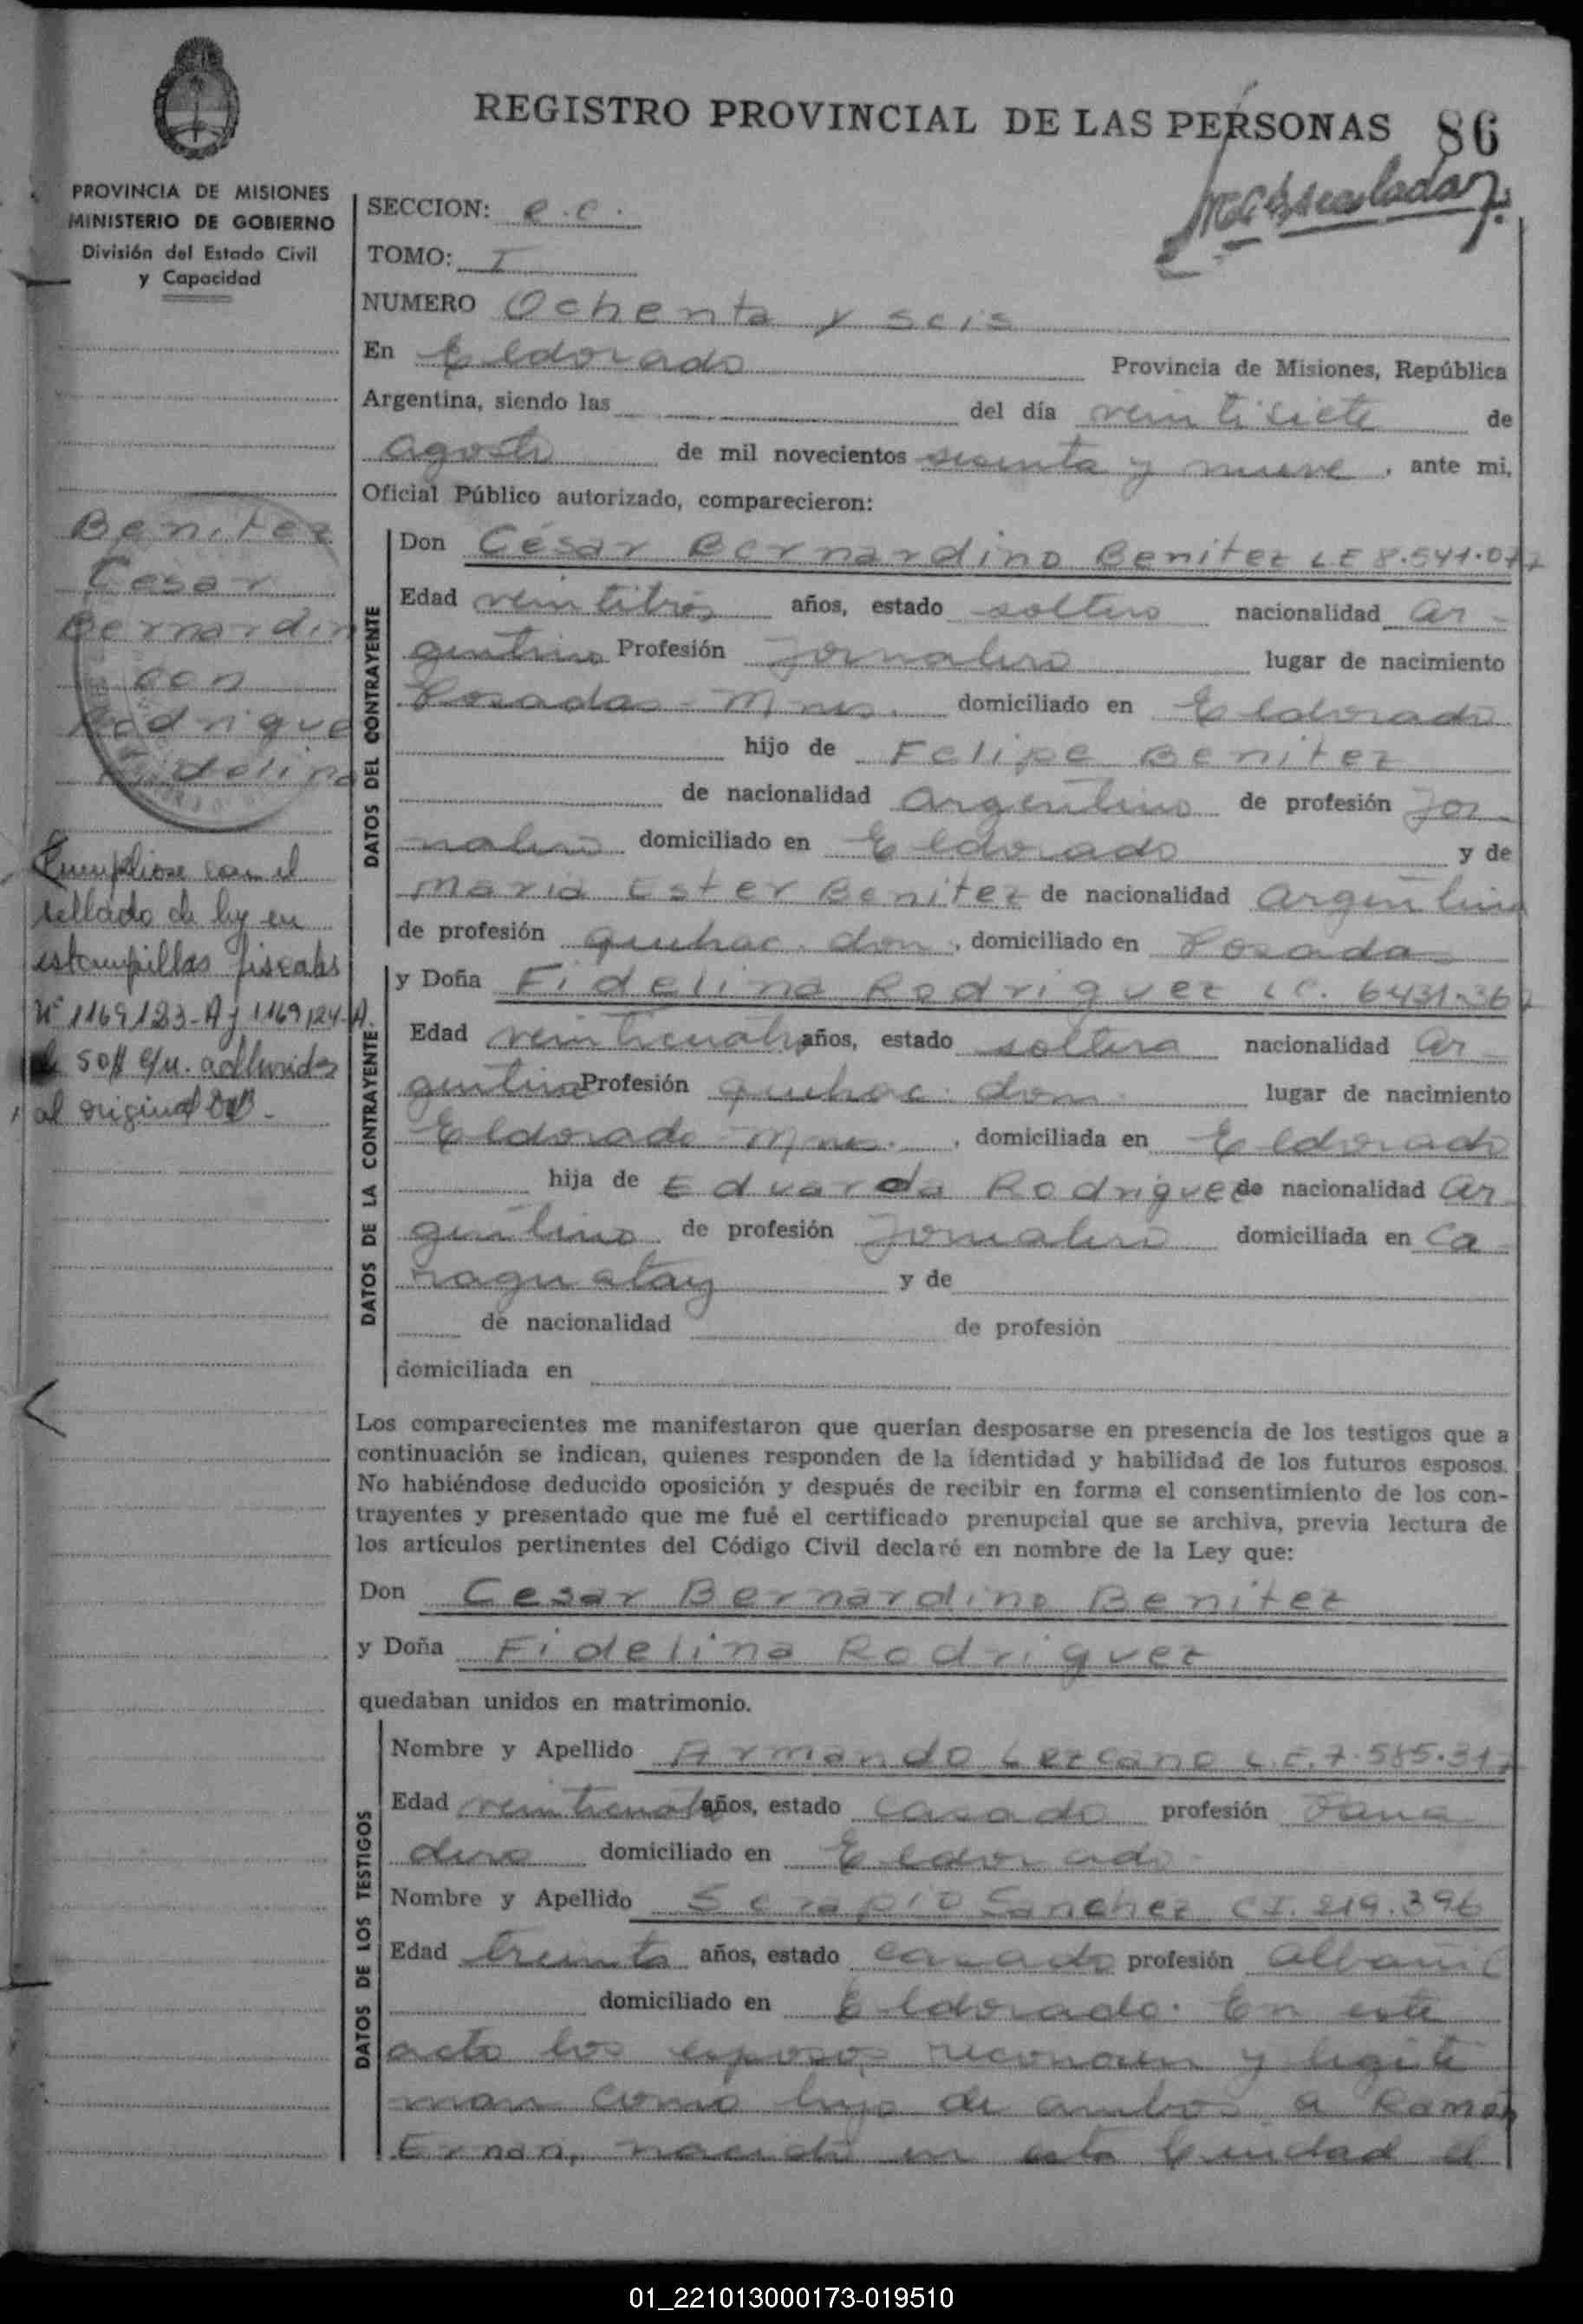 REGISTRO PROVINCIAL DE LAS PERSONAS 86
PROVINCIA DE MISIONES
MINISTERIO DE GOBIERNO
División del Estado Civil
y Capacidad
SECCION: e.c.
TOMO: I
NUMERO Ochenta y seis
En Eldorado Provincia de Misiones, República
Argentina, siendo las del día veintisiete de
agosto de mil novecientos sesenta y nueve, ante mi,
Oficial Público autorizado, comparecieron:
Benitez
Cesar
Bernardin
con
Rodrigue
Fidelina
Cumpliose con el
sellado de ley en
estampillas fiscales
Nº 1169123-A y 1169124-A
50 c/u. adheridas
al original
DATOS DEL CONTRAYENTE
Don César Bernardino Benitez LE 8.541.077
Edad veintitrés años, estado soltero nacionalidad ar-
gentino Profesión Jornalero lugar de nacimiento
Posadas - Mnes. domiciliado en Eldorado
hijo de Felipe Benitez
de nacionalidad argentino de profesión Jor
nalero domiciliado en Eldorado y de
Maria Ester Benitez de nacionalidad argentina
de profesión quehac. dom., domiciliado en Posadas
DATOS DE LA CONTRAYENTE
y Doña Fidelina Rodriguez LC. 6431.36
Edad veinticuatro años, estado soltera nacionalidad ar-
gentina Profesión quehac. dom. lugar de nacimiento
Eldorado - Mnes., domiciliada en Eldorado
hija de Eduardo Rodriguez de nacionalidad ar-
gentino de profesión Jornalero domiciliada en Ca-
raguatay y de
de nacionalidad de profesión
domiciliada en
Los comparecientes me manifestaron que querían desposarse en presencia de los testigos que a
continuación se indican, quienes responden de la identidad y habilidad de los futuros esposos.
No habiéndose deducido oposición y después de recibir en forma el consentimiento de los con-
trayentes y presentado que me fué el certificado prenupcial que se archiva, previa lectura de
los artículos pertinentes del Código Civil declaré en nombre de la Ley que:
Don Cesar Bernardino Benitez
y Doña Fidelina Rodriguez
quedaban unidos en matrimonio.
DATOS DE LOS TESTIGOS
Nombre y Apellido Armando Lezcano L.E. 7.585.317
Edad veinticuatro años, estado casado profesión Pana
dero domiciliado en Eldorado
Nombre y Apellido Serapio Sanchez CI. 219.396
Edad treinta años, estado casado profesión albañil
domiciliado en Eldorado. En este
acto los esposos reconocen y legiti
man como hijo de ambos a Ramón
Ernan, nacido en esta Ciudad el
01_221013000173-019510